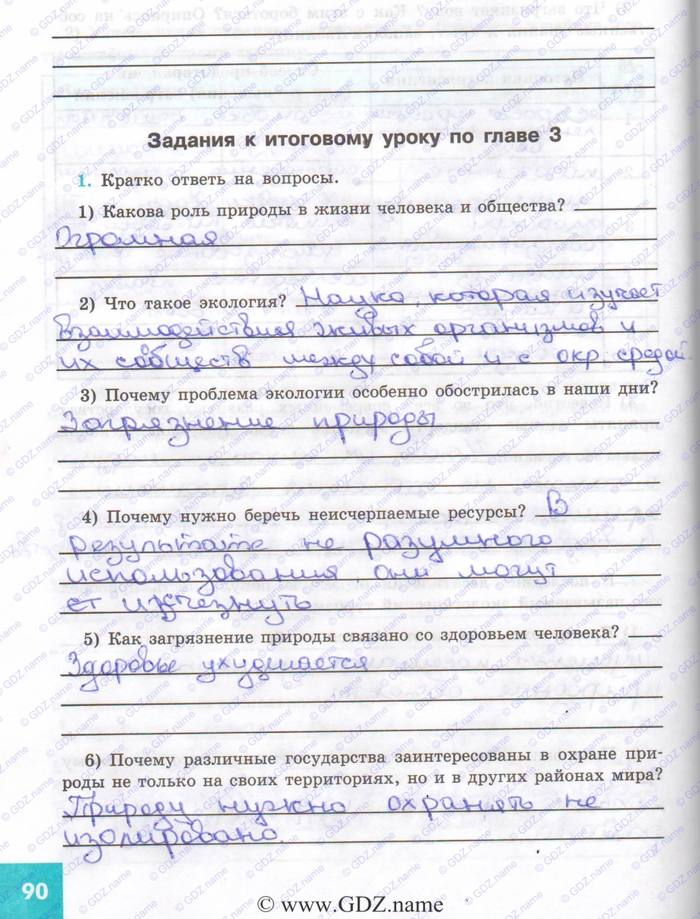 Задания к итоговому уроку по главе 3
1. Кратко ответь на вопросы.
1) Какова роль природы в жизни человека и общества?
Огромная
2) Что такое экология? Наука, которая изучает
взаимодействия живых организмов и
их сообществ между собой и с окр. средой
3) Почему проблема экологии особенно обострилась в наши дни?
Загрязнение природы
4) Почему нужно беречь неисчерпаемые ресурсы? В
результате не разумного
использования они могут
исчезнуть
5) Как загрязнение природы связано со здоровьем человека?
Здоровье ухудшается
6) Почему различные государства заинтересованы в охране при-
роды не только на своих территориях, но и в других районах мира?
Природу нужно охранять не
изолировано.
90
© www.GDZ.name